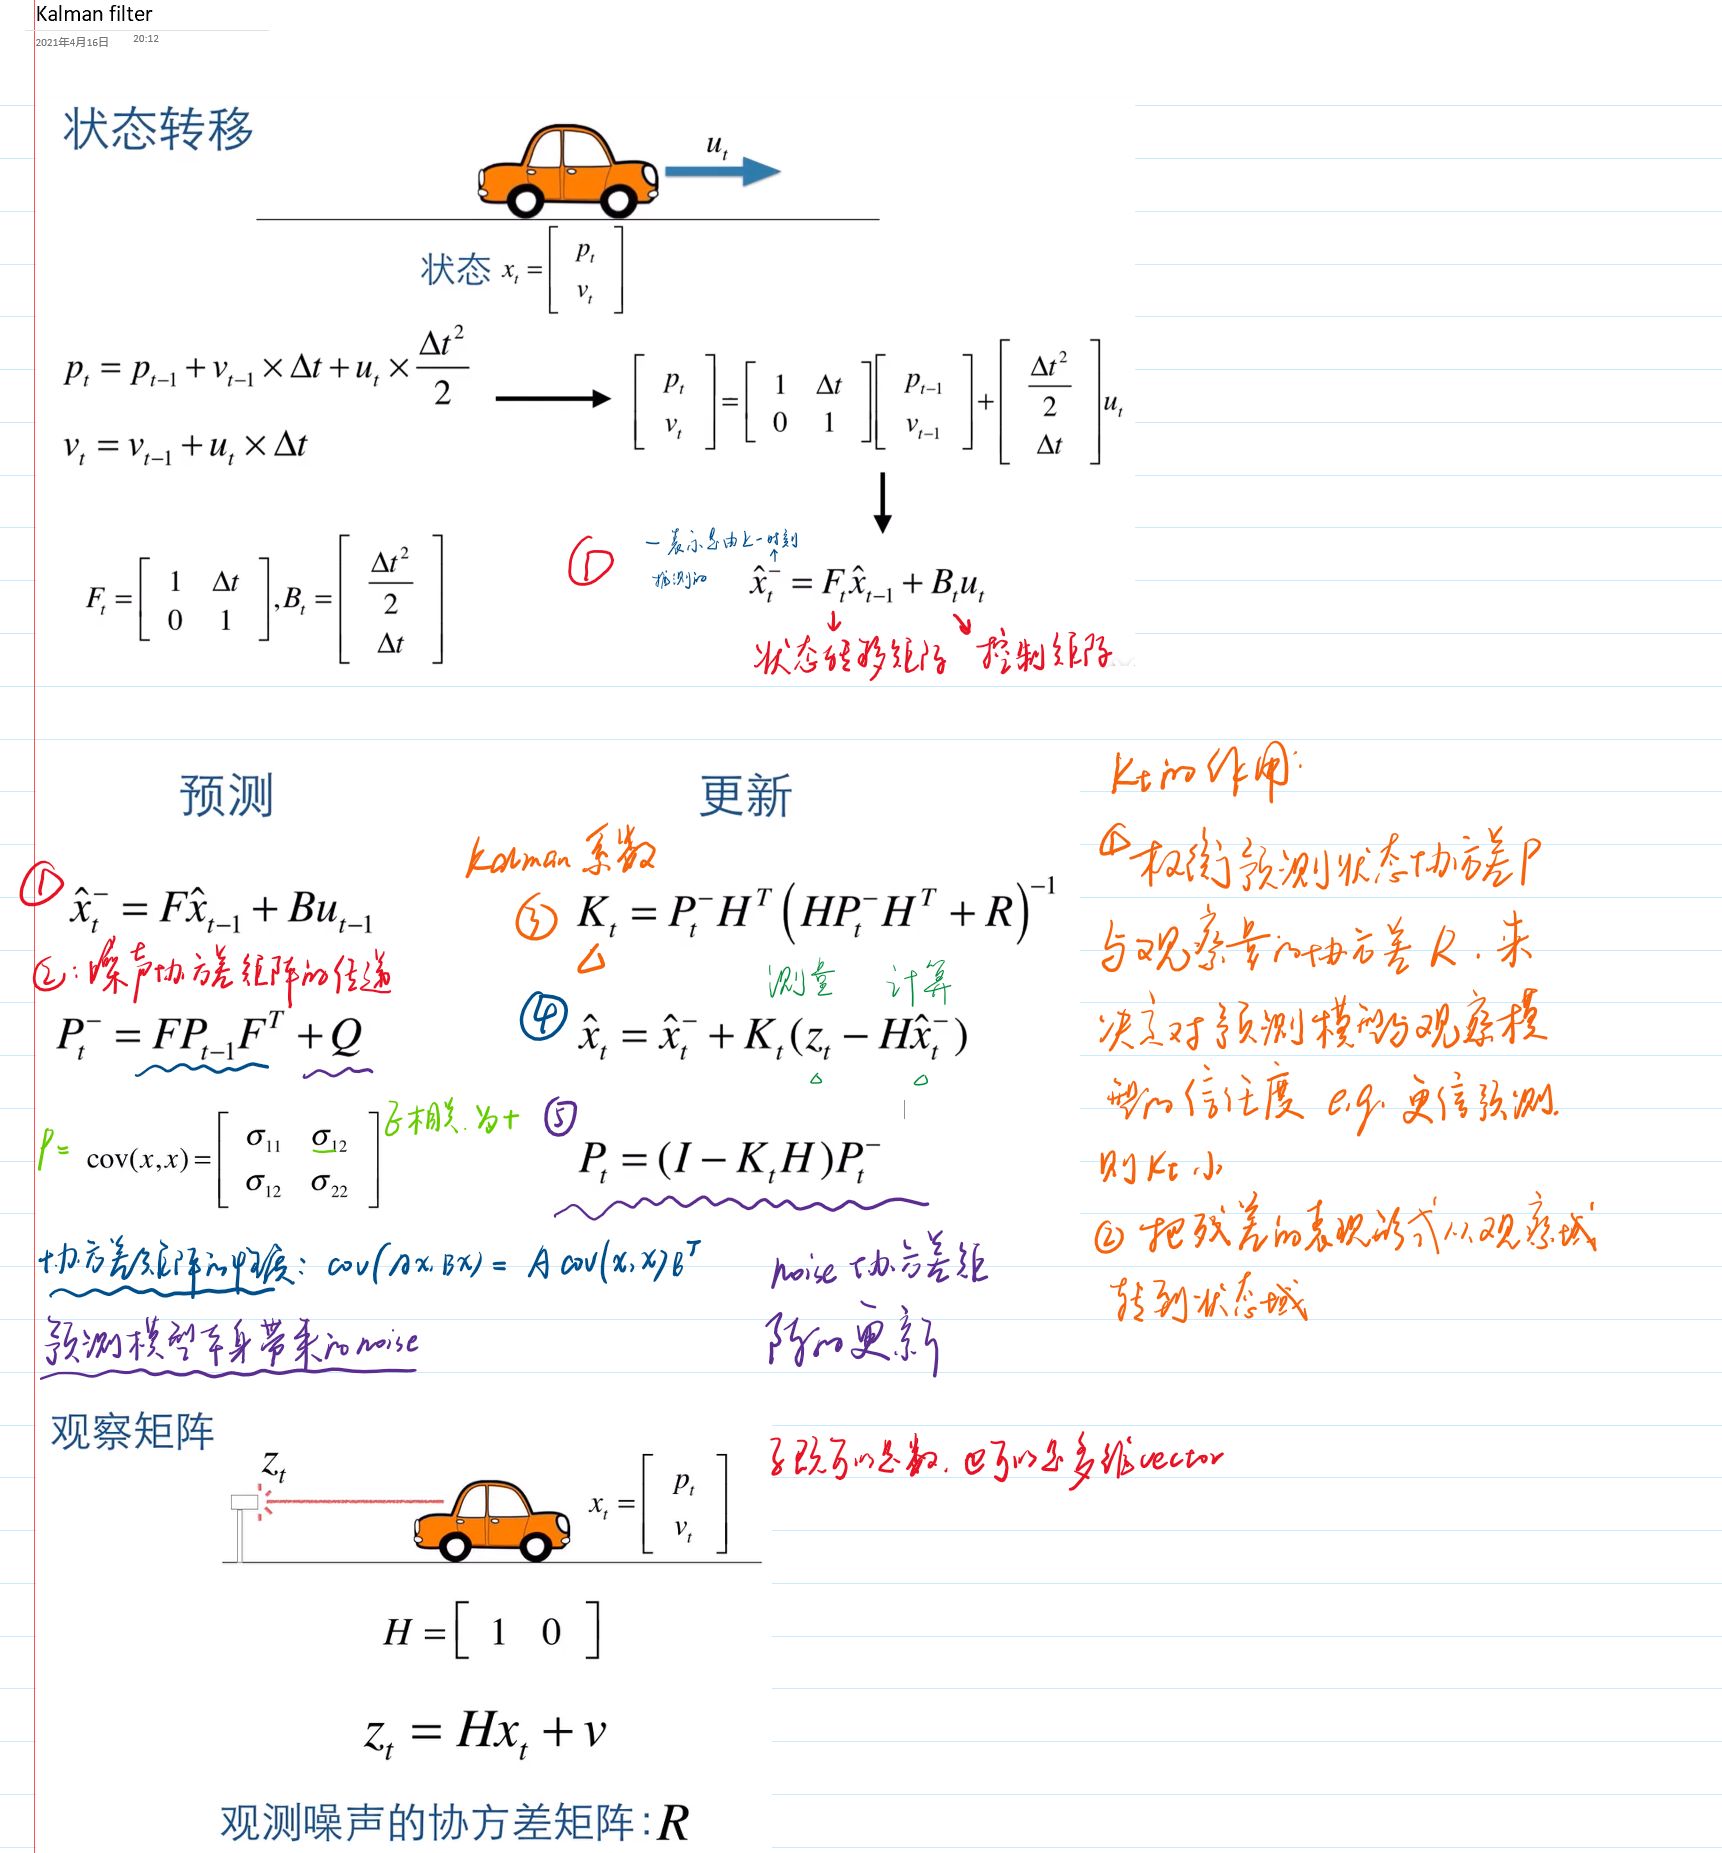 Kalman filter
2021年4月16日 20:12
状态转移
u_t
状态 x_t = [ p_t ; v_t ]
p_t = p_{t-1} + v_{t-1} × Δt + u_t × Δt²/2
v_t = v_{t-1} + u_t × Δt
[ p_t ; v_t ] = [ 1 Δt ; 0 1 ] [ p_{t-1} ; v_{t-1} ] + [ Δt²/2 ; Δt ] u_t
F_t = [ 1 Δt ; 0 1 ], B_t = [ Δt²/2 ; Δt ]
① — 表示是由上一时刻
推测的
x̂_t^- = F_t x̂_{t-1} + B_t u_t
状态转移矩阵 控制矩阵
预测
① x̂_t^- = F x̂_{t-1} + B u_{t-1}
②: 噪声协方差矩阵的传递
P_t^- = F P_{t-1} F^T + Q
P = cov(x,x) = [ σ_11 σ_12 ; σ_12 σ_22 ] 正相关.为+
协方差矩阵的性质: cov(Ax, Bx) = A cov(x,x) B^T
预测模型本身带来的noise
更新
Kalman 系数
③ K_t = P_t^- H^T ( H P_t^- H^T + R )^{-1}
测量 计算
④ x̂_t = x̂_t^- + K_t ( z_t − H x̂_t^- )
⑤ P_t = ( I − K_t H ) P_t^-
noise 协方差矩
阵的更新
Kt的作用:
① 权衡预测状态协方差P
与观察量的协方差R.来
决定对预测模型与观察模
型的信任度 e.g. 更信预测.
则Kt小
② 把残差的表现形式从观察域
转到状态域
观察矩阵
z_t
x_t = [ p_t ; v_t ]
既可以是数.也可以是多维vector
H = [ 1 0 ]
z_t = H x_t + v
观测噪声的协方差矩阵:R